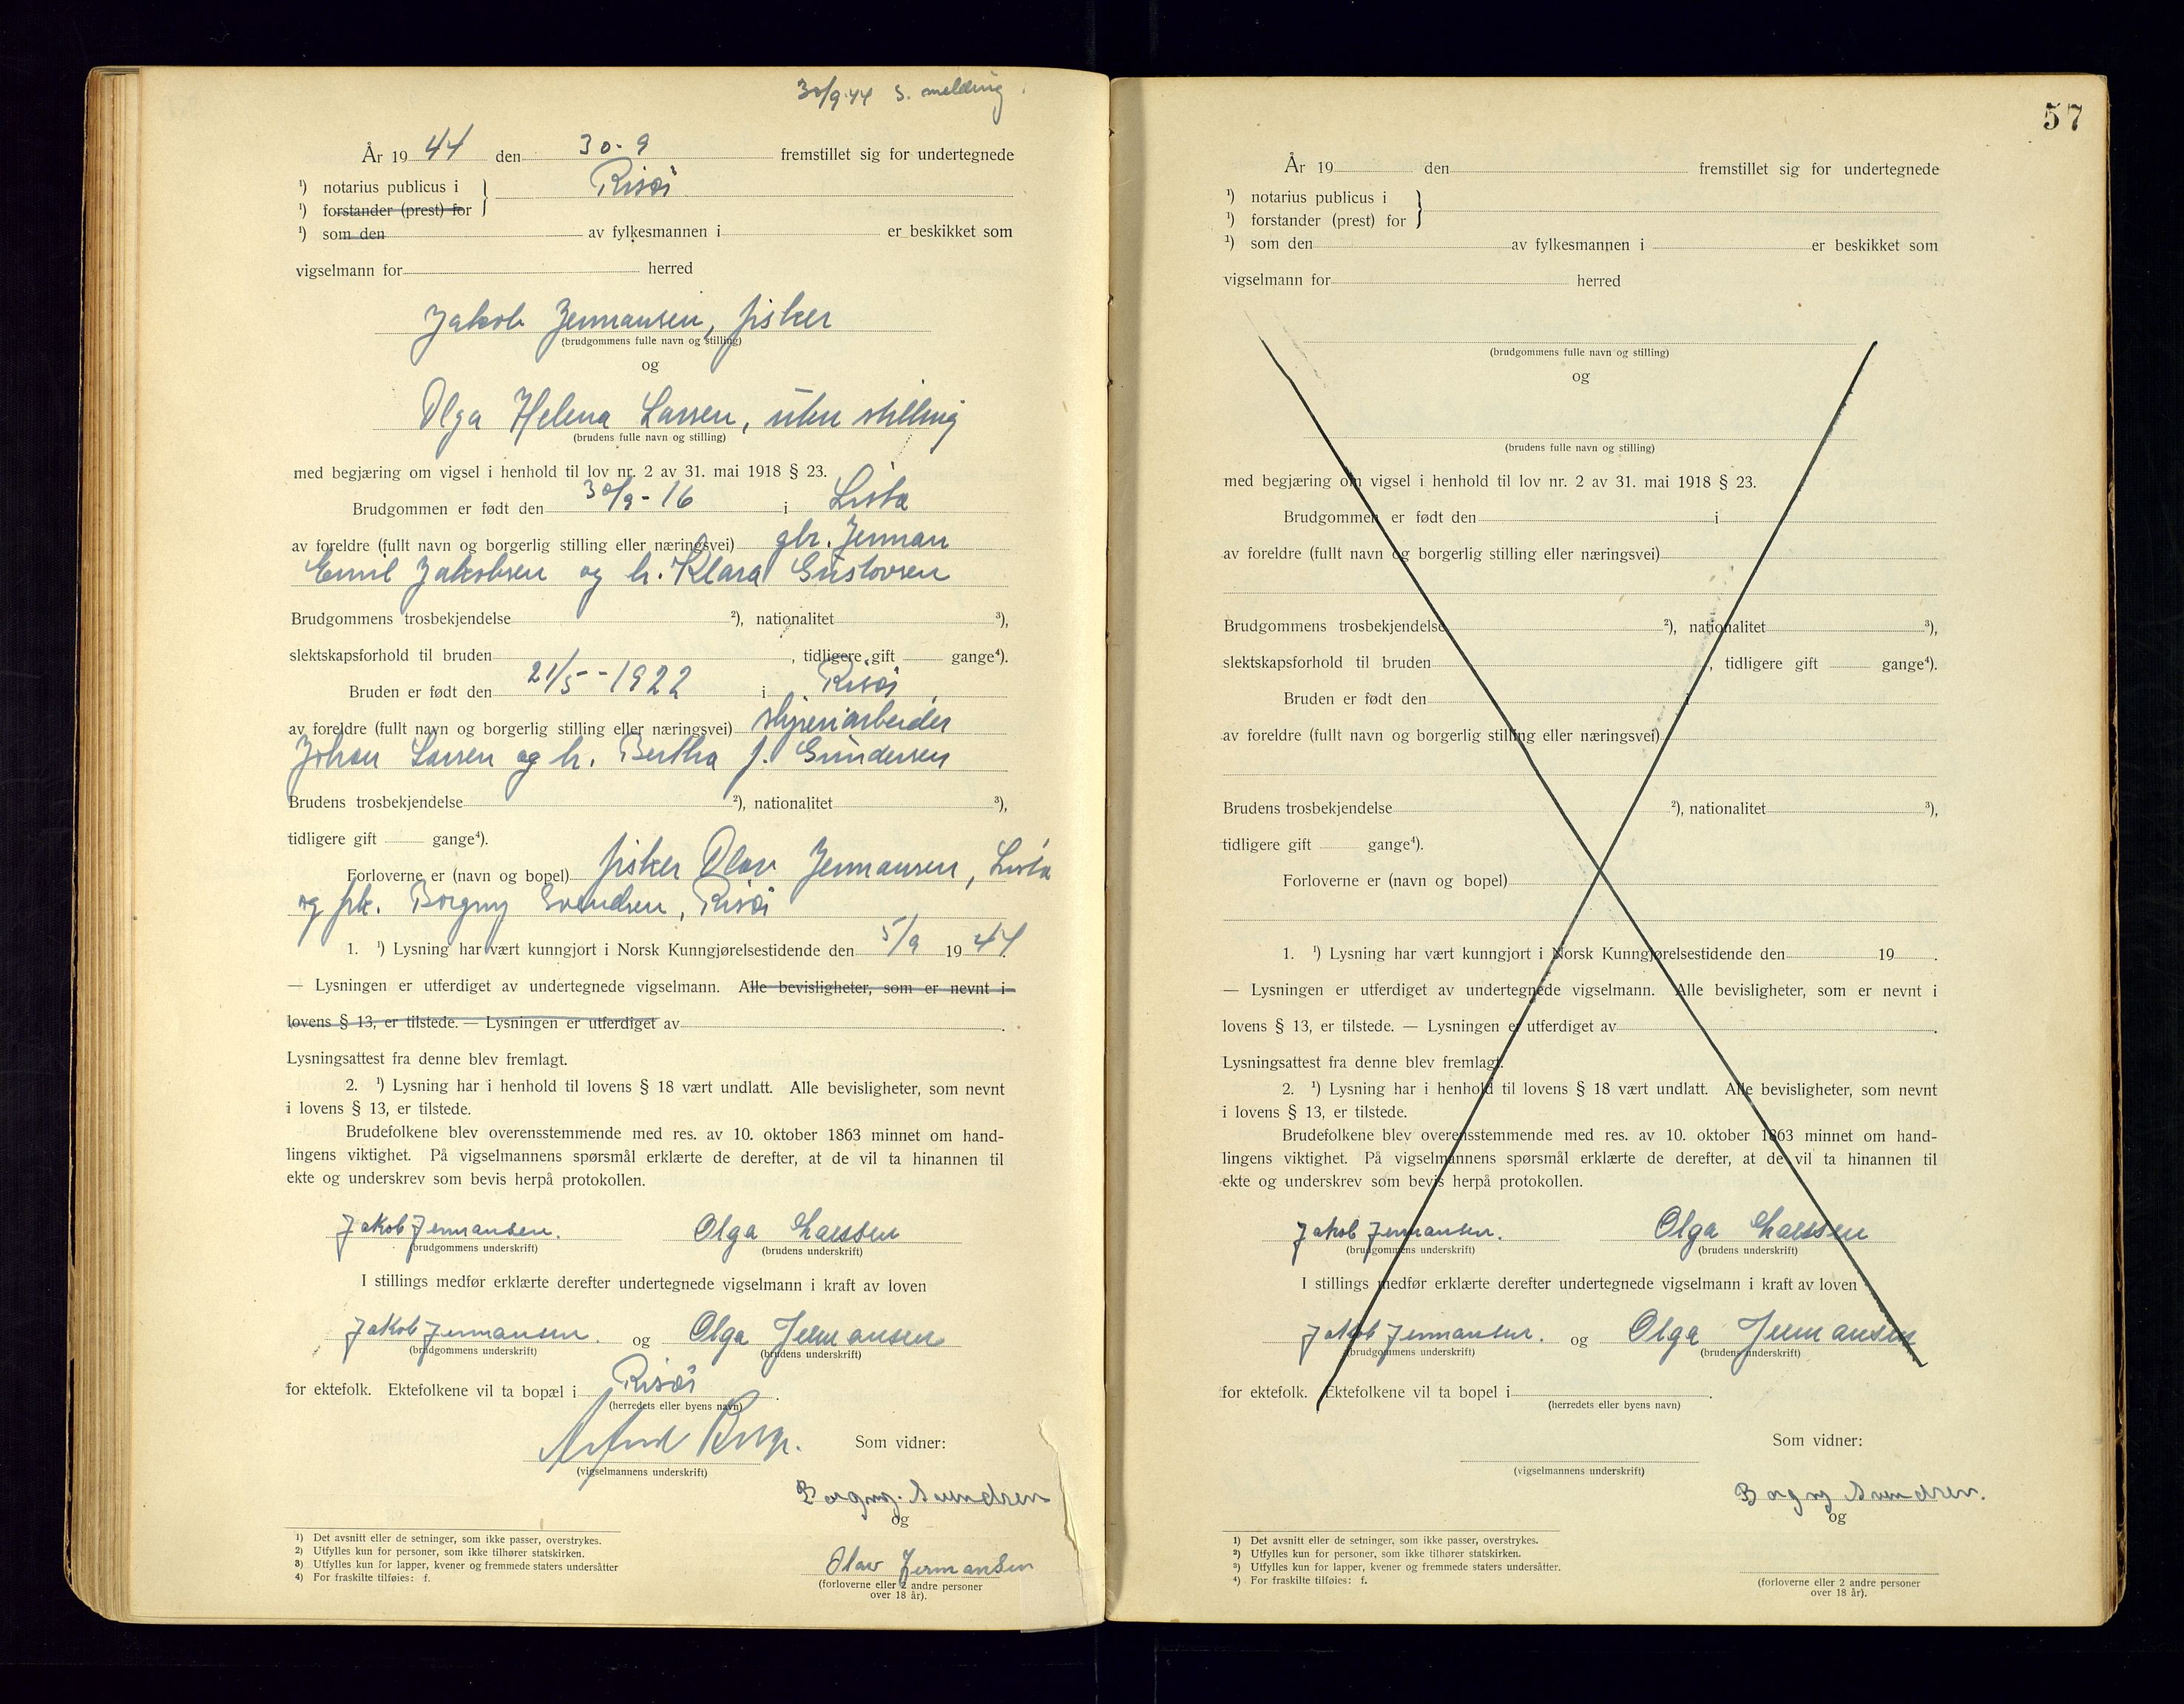 30/9.44 S. melding
År 19 44 den 30-9 fremstillet sig for undertegnede
¹) notarius publicus i } Risør
¹) forstander (prest) for
¹) som den av fylkesmannen i er beskikket som
vigselmann for herred
Jakob Jermansen, fisker
(brudgommens fulle navn og stilling)
og
Olga Helena Larsen, uten stilling
(brudens fulle navn og stilling)
med begjæring om vigsel i henhold til lov nr. 2 av 31. mai 1918 § 23.
Brudgommen er født den 30/9-16 i Lista
av foreldre (fullt navn og borgerlig stilling eller næringsvei) gbr. Jerman
Emil Jakobsen og h. Klara Gustavsen
Brudgommens trosbekjendelse ²), nationalitet ³),
slektskapsforhold til bruden , tidligere gift gange⁴).
Bruden er født den 21/5-1922 i Risør
av foreldre (fullt navn og borgerlig stilling eller næringsvei) sliperiarbeider
Johan Larsen og h. Bertha f. Gundersen
Brudens trosbekjendelse ²), nationalitet ³),
tidligere gift gange⁴).
Forloverne er (navn og bopel) fisker Olav Jermansen, Lista
og frk. Borgny Svendsen, Risør
1. ¹) Lysning har vært kunngjort i Norsk Kunngjørelsestidende den 5/9 19 44.
— Lysningen er utferdiget av undertegnede vigselmann. Alle bevisligheter, som er nevnt i
lovens § 13, er tilstede. — Lysningen er utferdiget av .
Lysningsattest fra denne blev fremlagt.
2. ¹) Lysning har i henhold til lovens § 18 vært undlatt. Alle bevisligheter, som nevnt
i lovens § 13, er tilstede.
Brudefolkene blev overensstemmende med res. av 10. oktober 1863 minnet om hand-
lingens viktighet. På vigselmannens spørsmål erklærte de derefter, at de vil ta hinannen til
ekte og underskrev som bevis herpå protokollen.
Jakob Jermansen. Olga Larssen
(brudgommens underskrift) (brudens underskrift)
I stillings medfør erklærte derefter undertegnede vigselmann i kraft av loven
Jakob Jermansen. og Olga Jermansen
(brudgommens underskrift) (brudens underskrift)
for ektefolk. Ektefolkene vil ta bopæl i Risør .
(herredets eller byens navn)
Som vidner:
(vigselmannens underskrift)
Borgny Svendsen
og
Olav Jermansen
(forloverne eller 2 andre personer
over 18 år).
1) Det avsnitt eller de setninger, som ikke passer, overstrykes.
2) Utfylles kun for personer, som ikke tilhører statskirken.
3) Utfylles kun for lapper, kvener og fremmede staters undersåtter
4) For fraskilte tilføies: f.
57
År 19 den fremstillet sig for undertegnede
¹) notarius publicus i }
¹) forstander (prest) for
¹) som den av fylkesmannen i er beskikket som
vigselmann for herred
(brudgommens fulle navn og stilling)
og
(brudens fulle navn og stilling)
med begjæring om vigsel i henhold til lov nr. 2 av 31. mai 1918 § 23.
Brudgommen er født den i
av foreldre (fullt navn og borgerlig stilling eller næringsvei)
Brudgommens trosbekjendelse ²), nationalitet ³),
slektskapsforhold til bruden , tidligere gift gange⁴).
Bruden er født den i
av foreldre (fullt navn og borgerlig stilling eller næringsvei)
Brudens trosbekjendelse ²), nationalitet ³),
tidligere gift gange⁴).
Forloverne er (navn og bopel)
1. ¹) Lysning har vært kunngjort i Norsk Kunngjørelsestidende den 19 .
— Lysningen er utferdiget av undertegnede vigselmann. Alle bevisligheter, som er nevnt i
lovens § 13, er tilstede. — Lysningen er utferdiget av .
Lysningsattest fra denne blev fremlagt.
2. ¹) Lysning har i henhold til lovens § 18 vært undlatt. Alle bevisligheter, som nevnt
i lovens § 13, er tilstede.
Brudefolkene blev overensstemmende med res. av 10. oktober 1863 minnet om hand-
lingens viktighet. På vigselmannens spørsmål erklærte de derefter, at de vil ta hinannen til
ekte og underskrev som bevis herpå protokollen.
Jakob Jermansen. Olga Larssen
(brudgommens underskrift) (brudens underskrift)
I stillings medfør erklærte derefter undertegnede vigselmann i kraft av loven
Jakob Jermansen. og Olga Jermansen
(brudgommens underskrift) (brudens underskrift)
for ektefolk. Ektefolkene vil ta bopel i .
(herredets eller byens navn)
Som vidner:
(vigselmannens underskrift)
Borgny Svendsen.
og
(forloverne eller 2 andre personer
over 18 år).
1) Det avsnitt eller de setninger, som ikke passer, overstrykes.
2) Utfylles kun for personer, som ikke tilhører statskirken.
3) Utfylles kun for lapper, kvener og fremmede staters undersåtter.
4) For fraskilte tilføies: f.